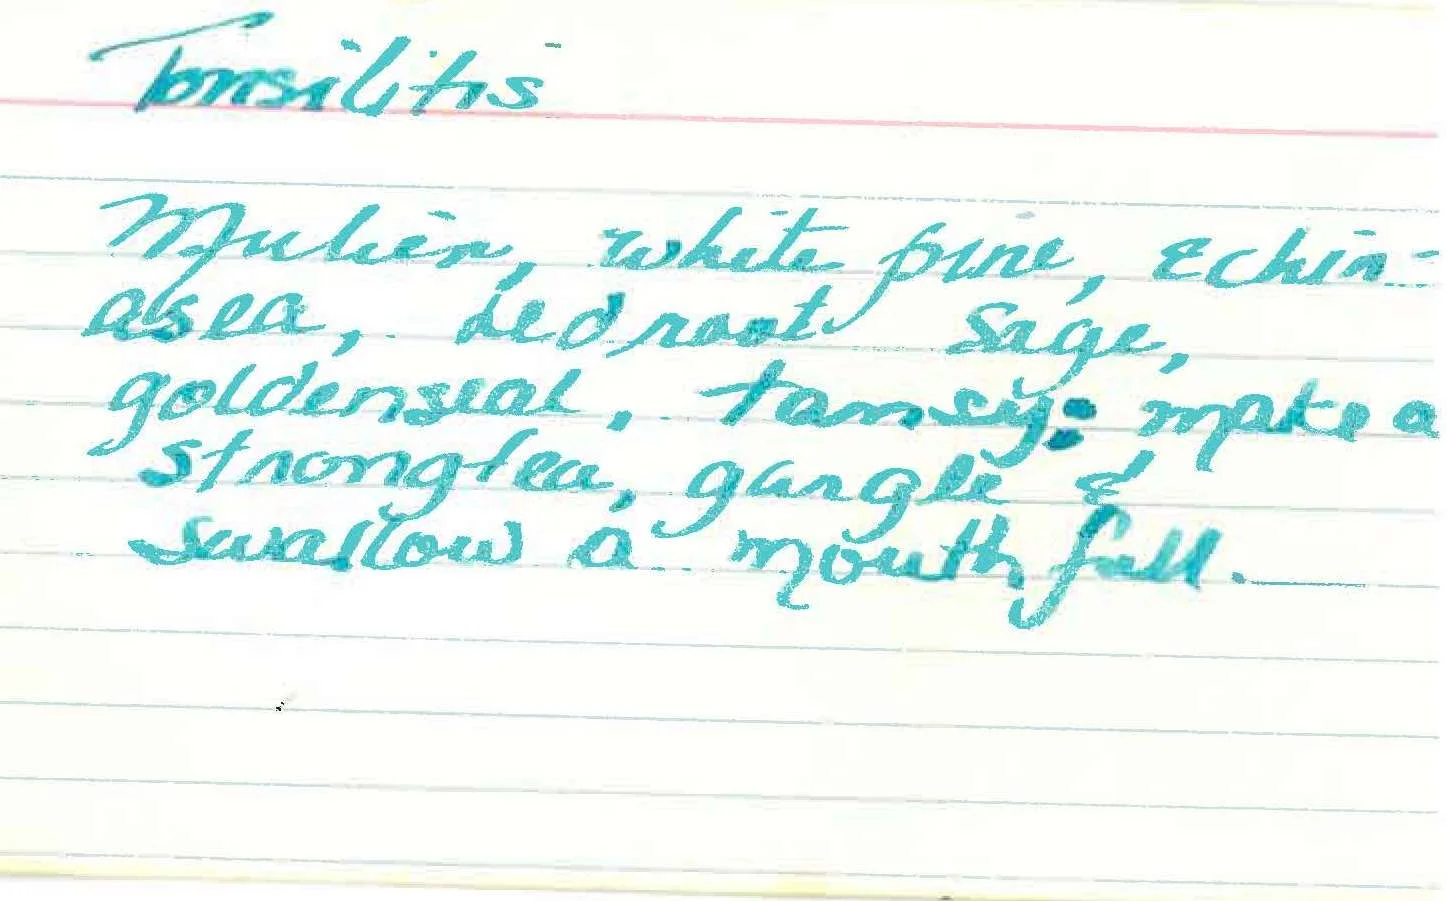 Tonsilitis
Mulien, white pine, Echin-
asea, redroot sage,
goldenseal, tansy: make a
strong tea, gargle &
swallow a mouth full.